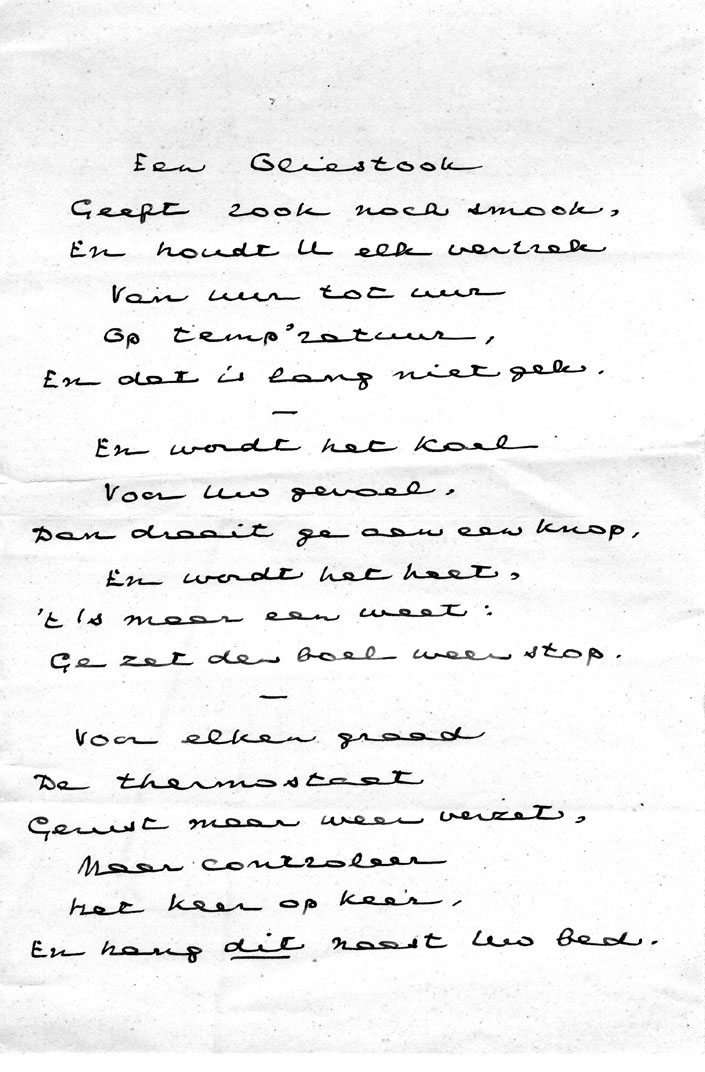 Een Oliestook
Geeft rook noch smook,
En houdt U elk vertrek
Van uur tot uur
Op temp'ratuur,
En dat is lang niet gek.
—
En wordt het koel
Voor Uw gevoel,
Dan draait ge aan een knop,
En wordt het heet,
't Is maar een weet:
Ge zet den boel weer stop.
—
Voor elken graad
De thermostaat
Gerust maar weer verzet,
Maar controleer
Het keer op keer,
En hang dit naast Uw bed.